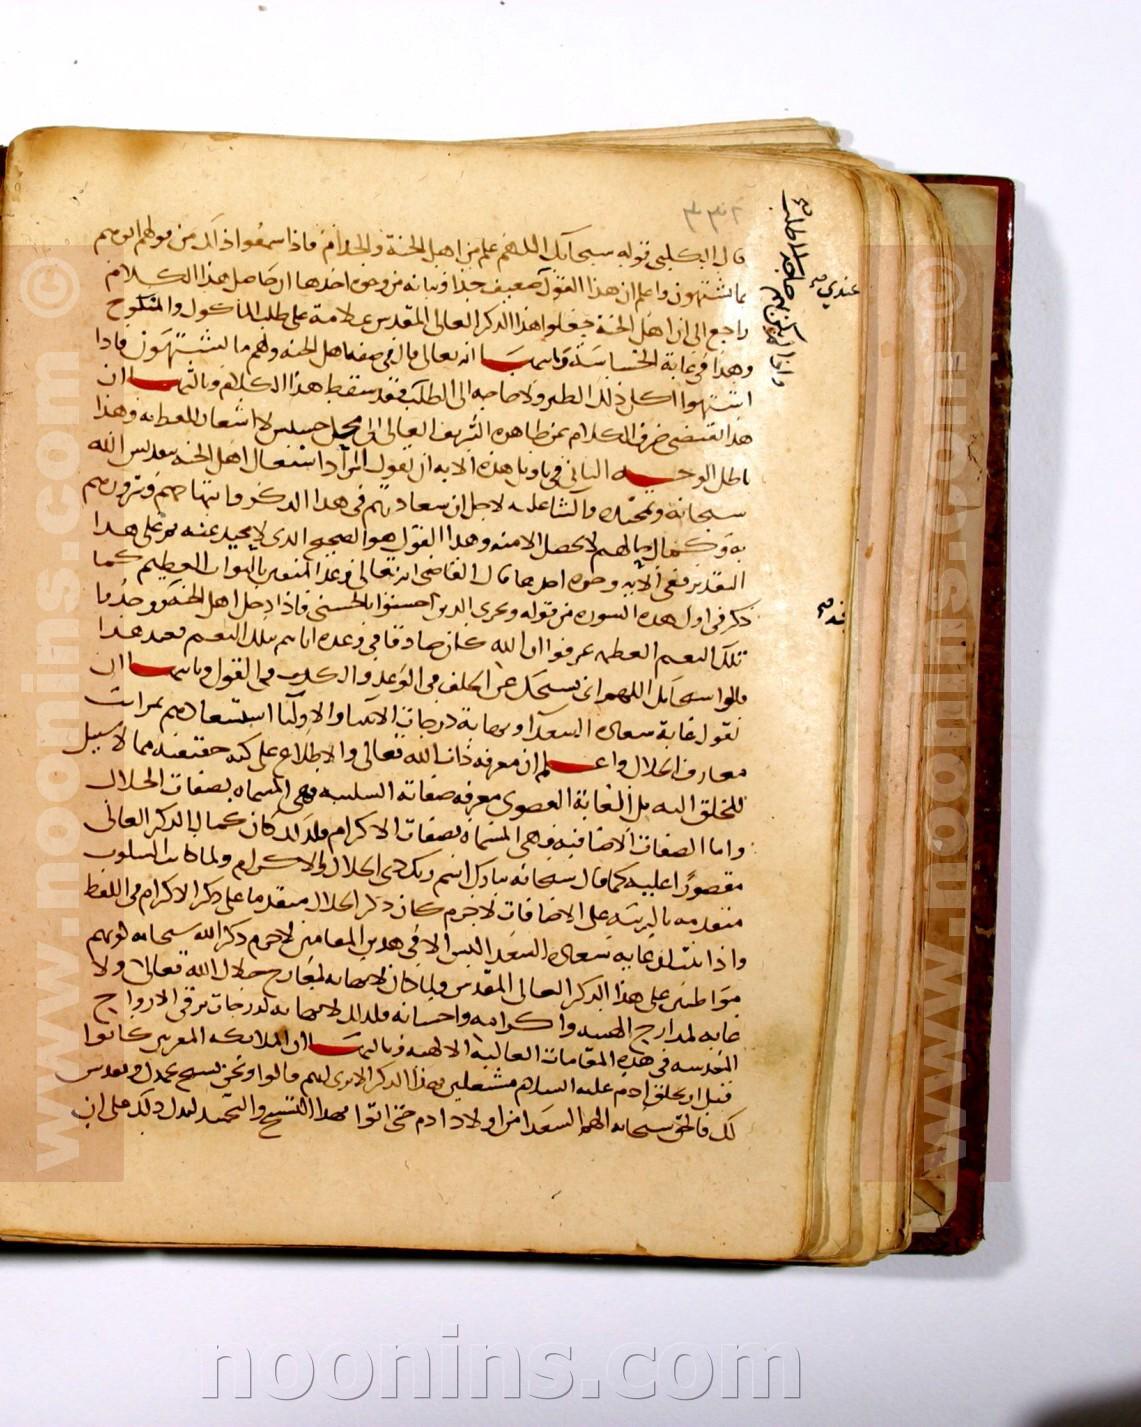 قال الكلبي قوله سبحانك اللهم علم بين اهل الجنة والخدام فاذا سمعوا ذلك من قولهم اتوهم
بما يشتهون واعلم ان هذا القول ضعيف جدا وبيانه من وجوه احدها ان حاصل هذا الكلام
راجع الى ان اهل الجنة جعلوا هذا الذكر العالي المقدس علامة على طلب المأكول والمنكوح
وهذا في غاية الخساسة وثانيها انه تعالى قال في صفة اهل الجنة ولهم ما يشتهون فاذا
اشتهوا اكل ذلك الطير ولا حاجة الى الطلب فقد سقط هذا الكلام وثالثها ان
هذا يقتضي صرف الكلام عن ظاهره الشريف العالي الى محمل خسيس لا اشعار للفظ به وهذا
باطل الوجه الثاني في تاويل هذه الاية ان نقول المراد اشتغال اهل الجنة بتقديس الله
سبحانه وتمجيده والثنا عليه لاجل ان سعادتهم في هذا الذكر وابتهاجهم وسرورهم
به وكمال حالهم لا يحصل الا منه وهذا القول هو الصحيح الذي لا محيد عنه ثم على هذا
التقدير ففي الاية وجوه احدها قال القاضي انه تعالى وعد المتقين بالثواب العظيم كما
ذكر في اول هذه السورة من قوله ويجزي الذين احسنوا بالحسنى فاذا دخل اهل الجنة ووجدوا
تلك النعم العظيمة عرفوا ان الله كان صادقا في وعده اياهم بتلك النعم فعند هذا
قالوا سبحانك اللهم اي نسبحك عن الخلف في الوعد والكذب في القول وثانيها ان
نقول غاية سعادة السعدا ونهاية درجات الانبيا والاوليا استسعادهم بمراتب
معارف الجلال واعلم ان معرفة ذات الله تعالى والاطلاع على كنه حقيقته مما لا سبيل
للخلق اليه بل الغاية القصوى معرفة صفاته السلبية وهي المسماة بصفات الجلال
واما الصفات الاضافية فهي المسماة بصفات الاكرام فلذلك كان كمال الذكر العالي
مقصورا عليه كما قال سبحانه تبارك اسم ربك ذي الجلال والاكرام ولما كانت السلوب
متقدمة بالرتبة على الاضافات لا جرم كان ذكر الجلال متقدما على ذكر الاكرام في اللفظ
واذا ثبت ان غاية سعادة السعدا ليس الا في هذين المقامين لا جرم ذكر الله سبحانه كونهم
مواظبين على هذا الذكر العالي المقدس ولما كان لا نهاية لمعارج جلال الله تعالى ولا
غاية لمدارج الهيته واكرامه واحسانه فكذلك لا نهاية لدرجات ترقي الارواح
المقدسة في هذه المقامات العالية الالهية وثالثها ان الملائكة المقربين كانوا
قبل ان يخلق ادم عليه السلام مشتغلين بهذا الذكر الا ترى انهم قالوا ونحن نسبح بحمدك ونقدس
لك فالحق سبحانه الهم السعدا من اولاد ادم حتى اتوا بهذا التسبيح والتحميد ليدل ذلك على ان
عندي
www.noonins.com ©
www.noonins.com ©
noonins.com